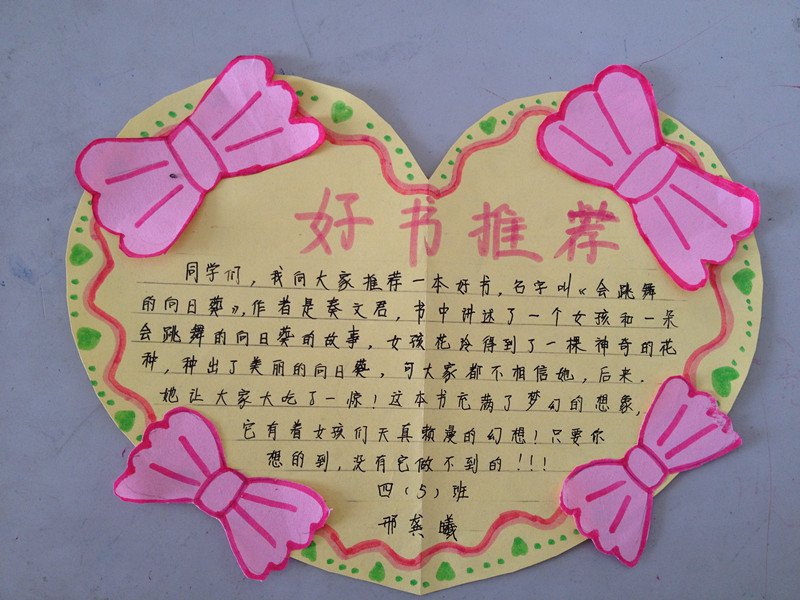 好书推荐
同学们，我向大家推荐一本好书，名字叫《会跳舞
的向日葵》，作者是秦文君，书中讲述了一个女孩和一朵
会跳舞的向日葵的故事，女孩花玲得到了一棵神奇的花
种，种出了美丽的向日葵，可大家都不相信她，后来，
她让大家大吃了一惊！这本书充满了梦幻的想象，
它有着女孩们天真懒漫的幻想！只要你
想的到，没有它做不到的！！！
四（5）班
邢龚曦